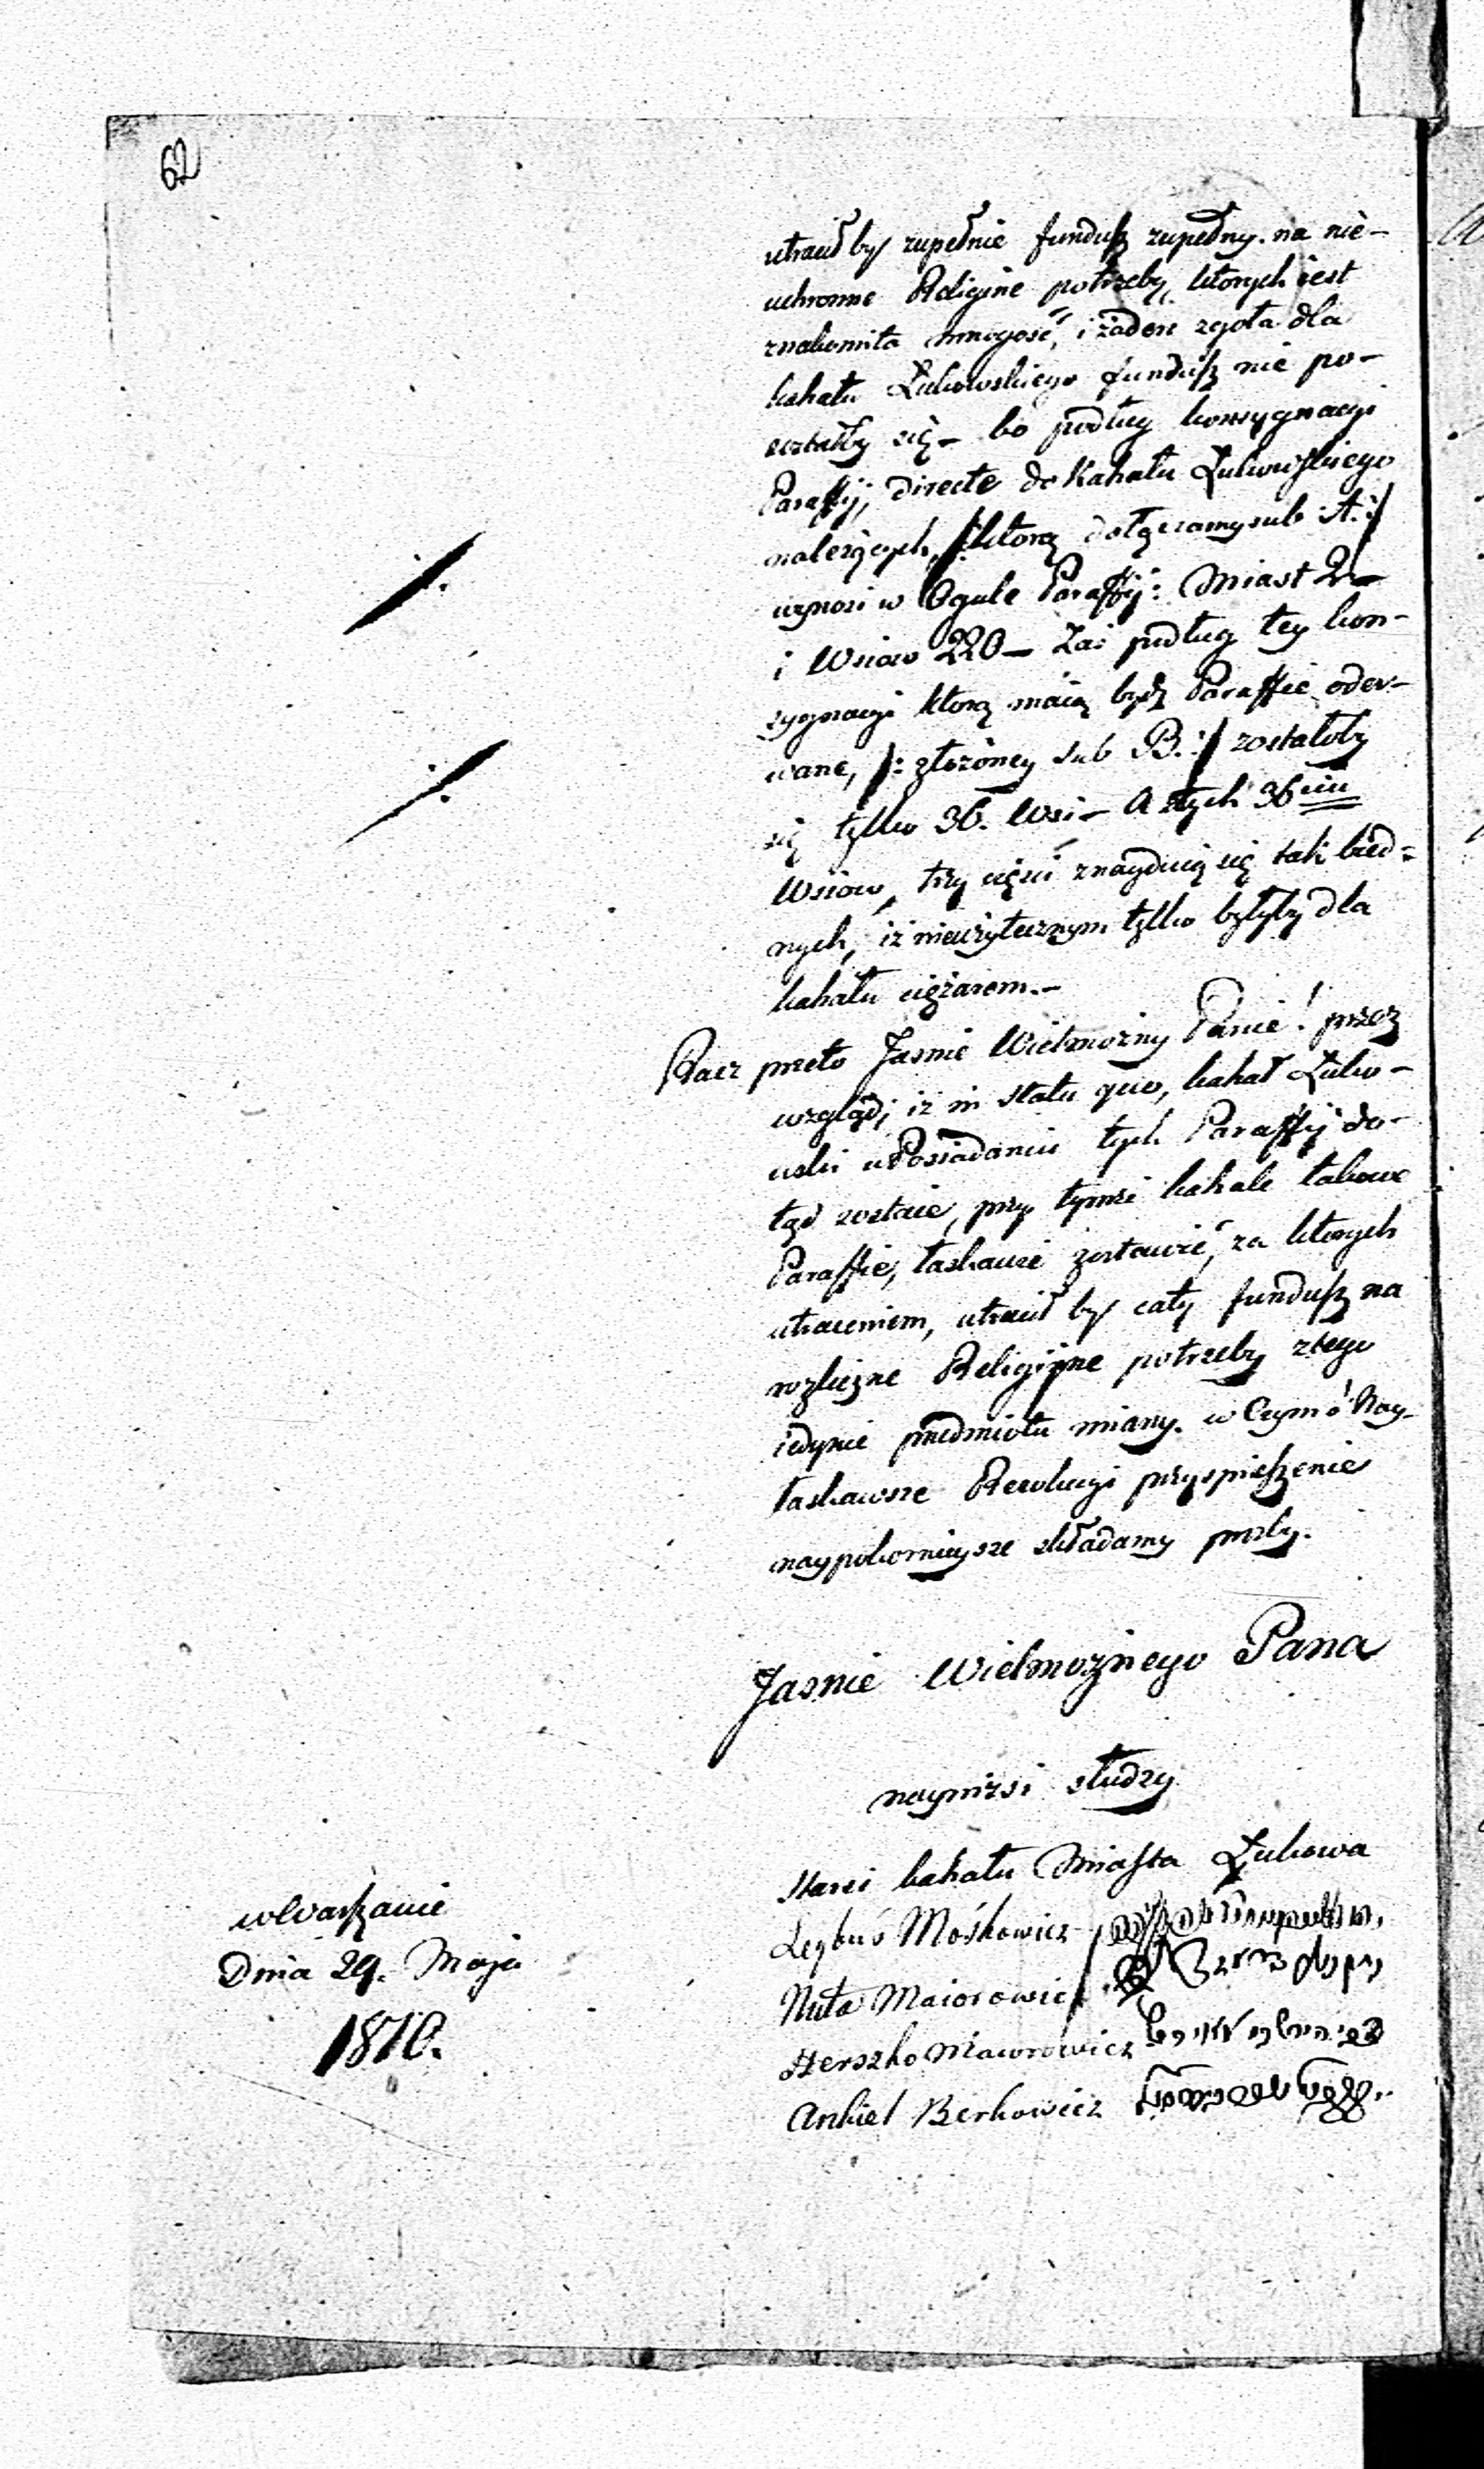 62
utracił by zupełnie fundusz zupełny na nie-
uchronne Religine potrzeby, których iest
znakomita mnogość, i żaden zgoła dla
kahału Łukowskiego fundusz nie po-
zostałby się - bo podług konsygnacyi
Paraffij, directe do Kahału Łukowskiego
należących, /: którą dołączamy sub A :/
wynosi w Ogule Paraffij: Miast 2 -
i Wsiow 220 - Zaś podług tey kon-
sygnacyi ktorą maią bydź Paraffie oder-
wane, /: złożoney sub B. :/ zostałoby
się tylko 36. Wsi - A z tych 36ciu
Wsiow, trzy części znayduią się tak bied-
nych, iż nieużytecznym tylko byłyby dla
kahału ciężarem. -
Racz przeto Jasnie Wielmożny Panie! przez
wzgląd, iż in statu quo, kahał Łuko-
wski w Posiadaniu tych Paraffij do-
tąd zostaie, przy tymże kahale takowe
Paraffie, łaskawie zostawić, za których
utraceniem, utracił by cały fundusz na
rozliczne Religijne potrzeby z tego
iedynie przedmiotu miany. w Czym o Nay-
łaskawsze Rezolucyi przyspieszenie
naypokornieysze składamy prozby.
Jasnie Wielmożnego Pana
nayniżsi słudzy
Starsi kahału Miasta Łukowa
w Warszawie
Dnia 29. Maja
1810.
Leybuś Mośkowicz
Nuta Maiorowicz
Herszko Maworowicz
Ankiel Berkowicz